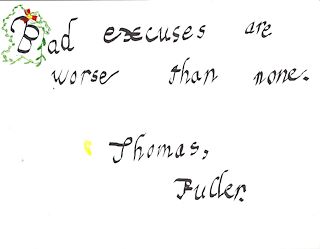 Bad excuses are
worse than none.
Thomas,
Fuller.